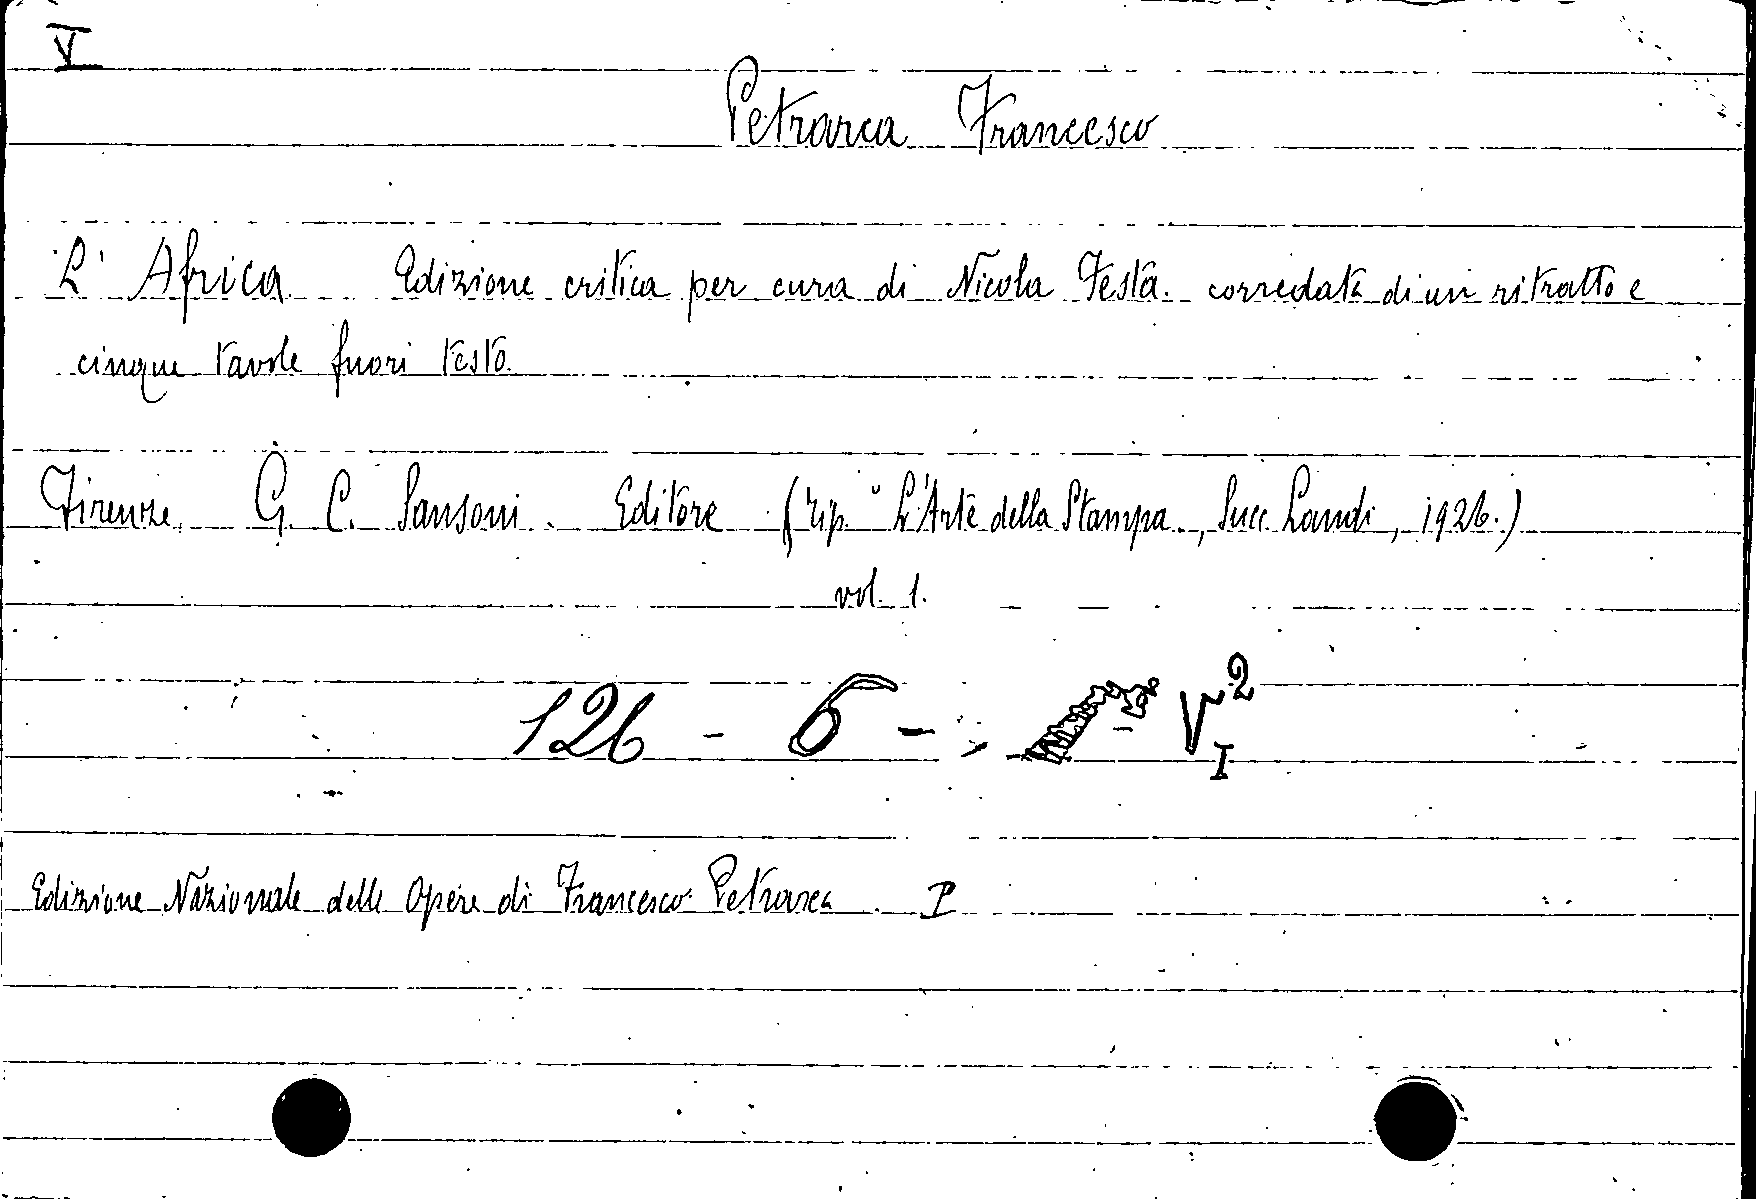 V
Petrarca Francesco
L' Africa Edizione critica per cura di Nicola Festa. corredata di un ritratto e
cinque tavole fuori testo.
Firenze, G. C. Sansoni. Editore (Tip. "L'Arte della Stampa., Succ. Landi, 1926.)
vol. 1.
126 - 6 - V 2 I
Edizione Nazionale delle Opere di Francesco Petrarca. I